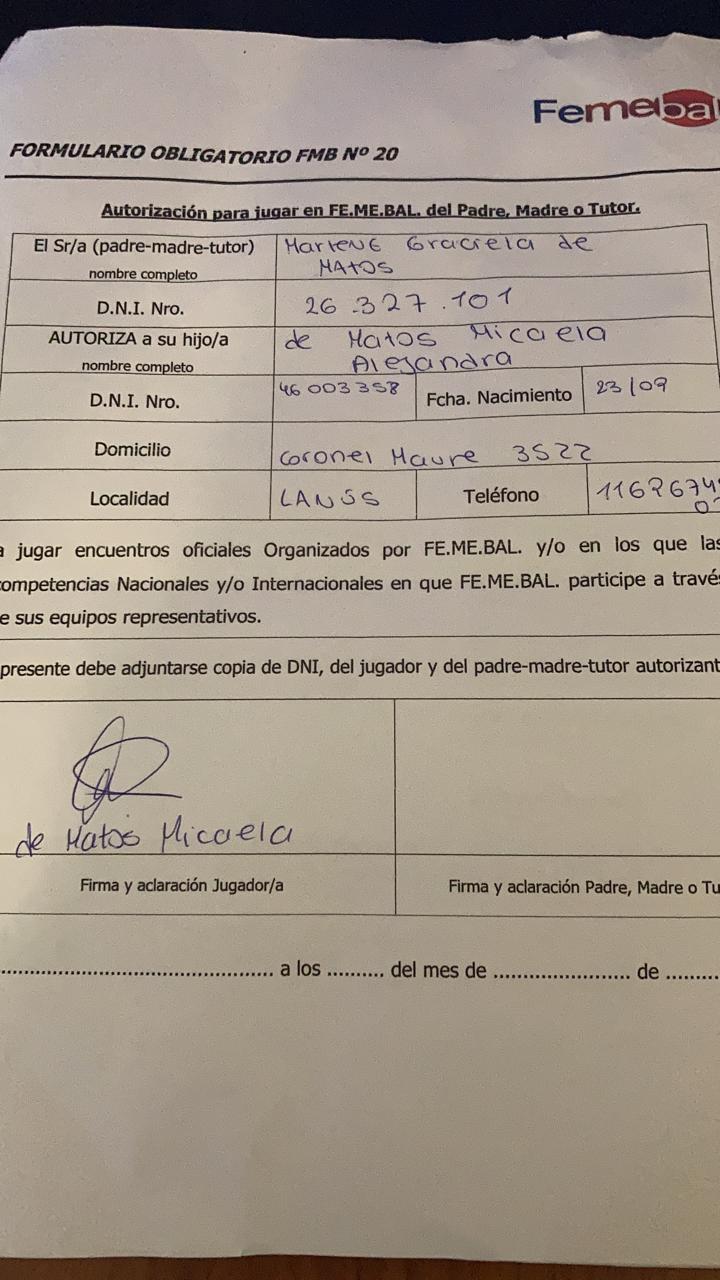 Femebal
FORMULARIO OBLIGATORIO FMB Nº 20
Autorización para jugar en FE.ME.BAL. del Padre, Madre o Tutor.
El Sr/a (padre-madre-tutor) Marlene Graciela de
nombre completo MATOS
D.N.I. Nro. 26.327.101
AUTORIZA a su hijo/a de Matos Micaela
nombre completo Alejandra
D.N.I. Nro. 46 003 358 Fcha. Nacimiento 23/09
Domicilio Coronel Maure 3522
Localidad LANUS Teléfono 11626749
0
a jugar encuentros oficiales Organizados por FE.ME.BAL. y/o en los que las
competencias Nacionales y/o Internacionales en que FE.ME.BAL. participe a través
e sus equipos representativos.
presente debe adjuntarse copia de DNI, del jugador y del padre-madre-tutor autorizant
de Matos Micaela
Firma y aclaración Jugador/a Firma y aclaración Padre, Madre o Tu
................................................ a los .......... del mes de ........................ de .........